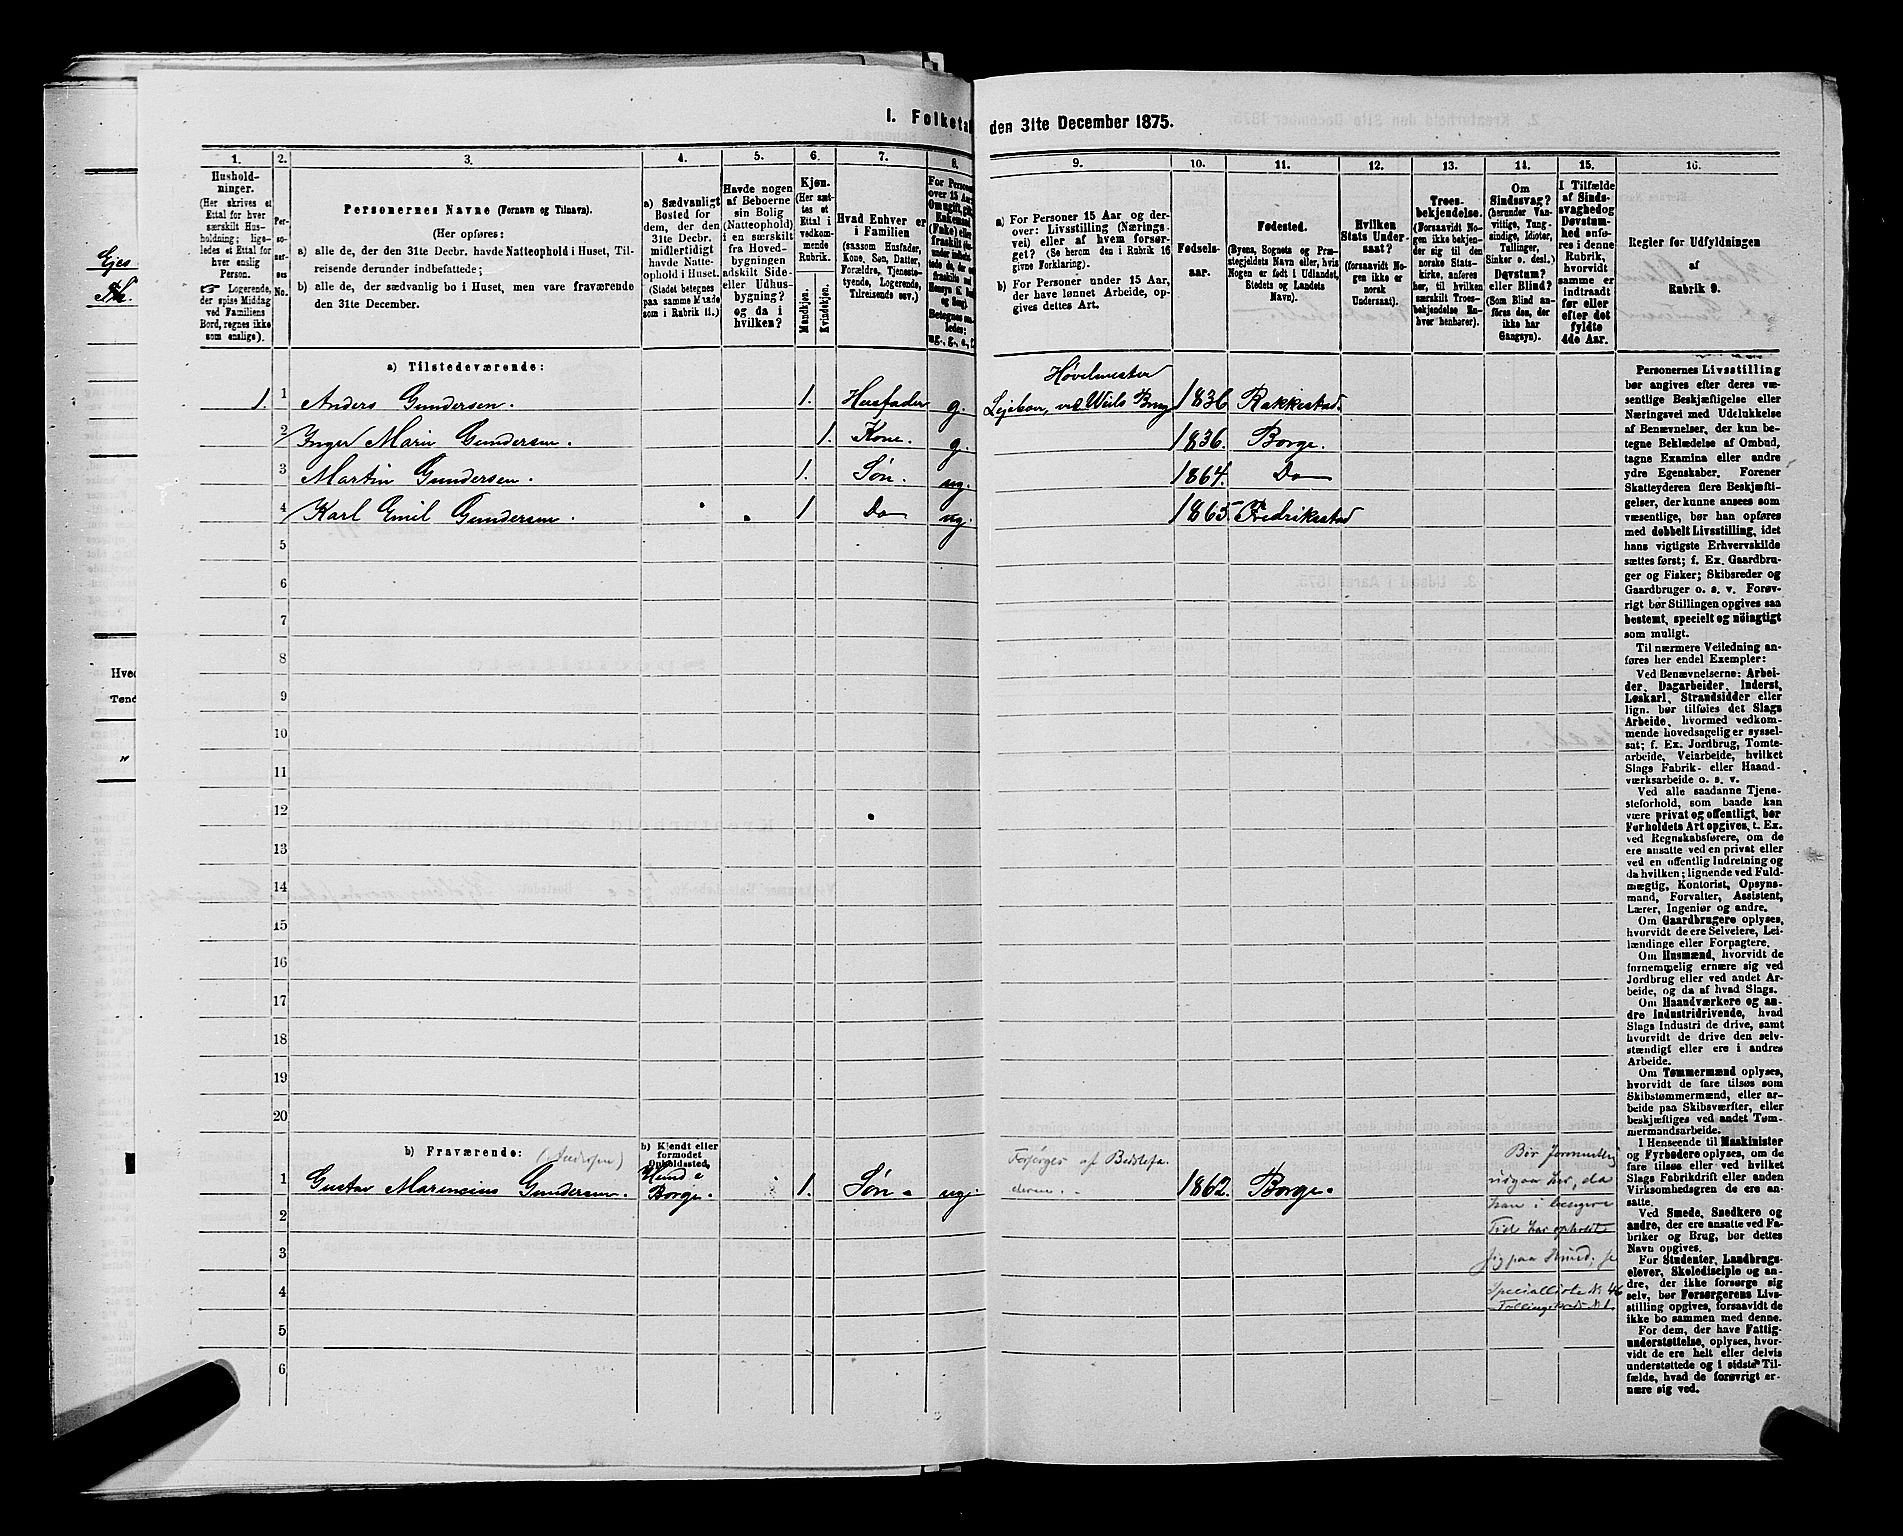 I. Folketal
den 31te December 1875.
1.
2.
3.
4.
5.
6.
7.
8.
9.
10.
11.
12.
13.
14.
15.
16.
Hushold-
ninger.
(Her skrives et
Ettal for hver
særskilt Hus-
holdning; lige-
ledes et Ettal
for hver
enslig Person.
☞ Logerende,
der spise Middag
ved Familiens
Bord, regnes ikke
som enslige).
Per-
so-
ner-
nes
No.
Personernes Navne (Fornavn og Tilnavn).
(Her opføres:
a) alle de, der den 31te Decbr. havde Natteophold i Huset, Til-
reisende derunder indbefattede;
b) alle de, der sædvanlig bo i Huset, men vare fraværende
den 31te December.
a) Sædvanligt
Bosted for
dem, der den
31te Decbr.
midlertidigt
havde Natte-
ophold i Huset.
(Stedet betegnes
paa samme Maade
som i Rubrik 11.)
Havde nogen
af Beboerne
sin Bolig
(Natteophold)
i en særskilt
fra Hoved-
bygningen
adskilt Side-
eller Udhus-
bygning?
og da i
hvilken?
Kjøn.
(Her sæt-
tes et
Ettal i
vedkom-
mende
Rubrik.
Mandkjøn.
Kvindekjøn.
Hvad Enhver er
i Familien
(saasom Husfader,
Kone, Søn, Datter,
Forældre, Tjeneste-
tyende, Logerende,
Tilreisende osv.)
a) For Personer 15 Aar og der-
over: Livsstilling (Nærings-
vei) eller af hvem forsør-
get? (Se herom den i Rubrik 16
givne Forklaring).
b) For Personer under 15 Aar,
der have lønnet Arbeide, op-
gives dettes Art.
Fødsels-
aar.
Fødested.
(Byens, Sognets og Præ-
stegjeldets Navn eller, hvis
Nogen er født i Udlandet,
Stedets og Landets
Navn).
Hvilken
Stats Under-
saat?
(forsaavidt No-
gen ikke er
norsk
Undersaat).
Troes-
bekjendelse.
(Forsaavidt No-
gen ikke bekjen-
der sig til den
norske Stats-
kirke, anføres
her, til hvilken
særskilt Troes-
bekjendelse En-
hver henhører).
Om
Sindssvag?
(herunder Van-
vittige, Tung-
sindige, Idioter,
Tullinger,
Sinker o. desl.)
Døvstum?
eller Blind?
(Som Blind an-
føres den, der
ikke har
Gangsyn).
I Tilfælde
af Sinds-
svaghed og
Døvstum-
hed anfø-
res i denne
Rubrik,
hvorvidt
samme er
indtraadt
før eller
efter det
fyldte
4de Aar.
Regler for Udfyldningen
af
Rubrik 9.
a) Tilstedeværende:
Høvelmester
1. 1 Anders Gundersen. 1. Husfader g. Leieboer, ved Wiels Brug 1836 Rakkestad.
2 Inger Marie Gundersen. 1. Kone. g. 1836. Borge.
3 Martin Gundersen. 1. Søn. ug. 1864. Do
4 Karl Emil Gundersen. 1 Do ug. 1865. Fredriksstad
5
6
7
8
9
10
11
12
13
14
15
16
17
18
19
20
b) Fraværende: (Andersen)
b) Kjendt eller
formodet
Opholdssted.
1 Gustav Marencius Gundersen. Hund i Borge. 1. Søn. ug. Forsørges af Bedstefa-
derne. 1862. Borge.
2
3
4
5
6
Bør formentlig
udgaa her, da
han i længere
Tid har opholdt
sig paa Hund, se
Specialliste No 46
Tællingskreds No 1.
Personernes Livsstilling
bør angives efter deres væ-
sentlige Beskjæftigelse eller
Næringsvei med Udelukkelse
af Benævnelser, der kun be-
tegne Beklædelse af Ombud,
tagne Examina eller andre
ydre Egenskaber. Forener
Skatteyderen flere Beskjæfti-
gelser, der kunne ansees som
væsentlige, bør han opføres
med dobbelt Livsstilling, idet
hans vigtigste Erhvervskilde
sættes først; f. Ex. Gaardbru-
ger og Fisker; Skibsreder og
Gaardbruger o. s. v. Forøv-
rigt bør Stillingen opgives saa
bestemt, specielt og nöiagtigt
som muligt.
Til nærmere Veiledning an-
føres her endel Exempler:
Ved Benævnelserne: Arbei-
der, Dagarbeider, Inderst,
Løskarl, Strandsidder eller
lign. bør tilføies det Slags
Arbeide, hvormed vedkom-
mende hovedsagelig er syssel-
sat; f. Ex. Jordbrug, Tomte-
arbeide, Veiarbeide, hvilket
Slags Fabrik- eller Haand-
værksarbeide o. s. v.
Ved alle saadanne Tjene-
steforhold, som baade kan
være privat og offentligt, bør
Forholdets Art opgives, t. Ex.
ved Regnskabsførere, om de
ere ansatte ved en privat eller
ved en offentlig Indretning og
da hvilken; lignende ved Fuld-
mægtig, Kontorist, Opsyns-
mand, Forvalter, Assistent,
Lærer, Ingeniør og andre.
Om Gaardbrugere oplyses,
hvorvidt de ere Selveiere, Lei-
lændinge eller Forpagtere.
Om Husmænd, hvorvidt de
fornemmelig ernære sig ved
Jordbrug eller ved andet Ar-
beide, og da af hvad Slags.
Om Haandværkere og an-
dre Industridrivende, hvad
Slags Industri de drive, samt
hvorvidt de drive den selv-
stændigt eller ere i andres
Arbeide.
Om Tømmermænd oplyses,
hvorvidt de fare tilsøs som
Skibstømmermænd, eller ar-
beide paa Skibsværfter, eller
beskjæftiges ved andet Tøm-
mermandsarbeide.
I Henseende til Maskinister
og Fyrbødere oplyses, om de
fare tilsøs eller ved hvilket
Slags Fabrikdrift eller anden
Virksomhedsgren de ere an-
satte.
Ved Smede, Snedkere og
andre, der ere ansatte ved Fa-
briker og Brug, bør dettes
Navn opgives.
For Studenter, Landbrugs-
elever, Skoledisciple og an-
dre, der ikke forsørge sig
selv, bør Forsørgerens Livs-
stilling opgives, forsaavidt de
ikke bo sammen med denne.
For dem, der have Fattig-
understøttelse, oplyses, hvor-
vidt de ere helt eller delvis
understøttede og i sidste Til-
fælde, hvad de forøvrigt er-
nære sig ved.